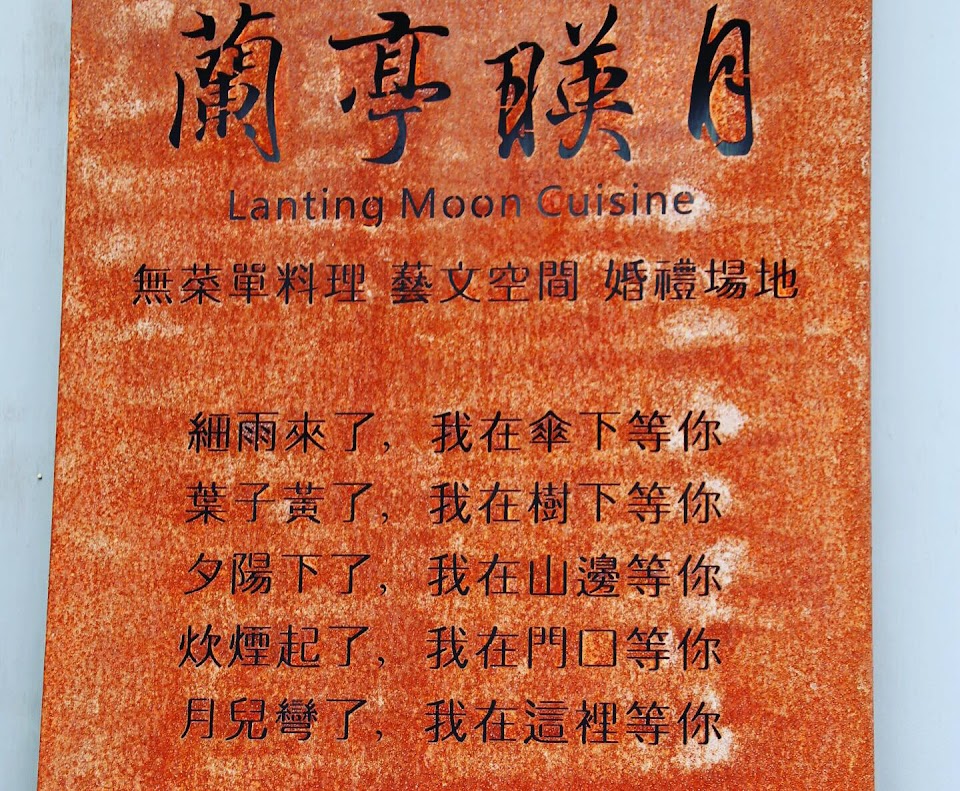 蘭亭瞹月
Lanting Moon Cuisine
無菜單料理 藝文空間 婚禮場地
細雨來了, 我在傘下等你
葉子黃了, 我在樹下等你
夕陽下了, 我在山邊等你
炊煙起了, 我在門口等你
月兒彎了, 我在這裡等你